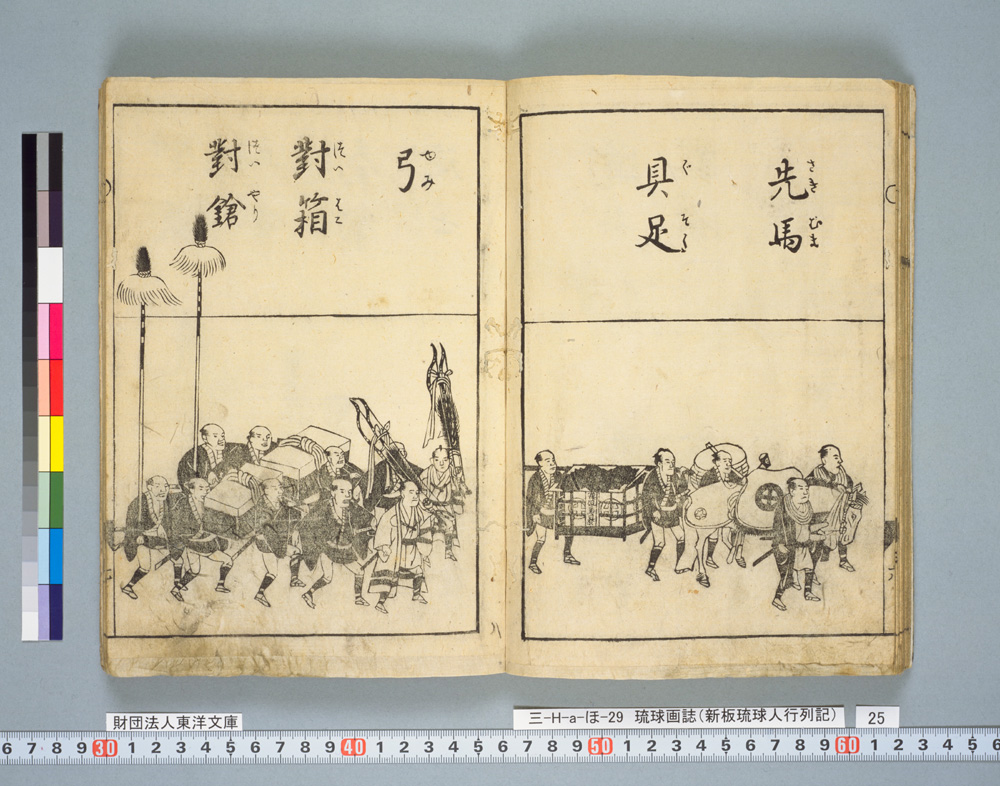 先馬
さき むま
具足
ぐ そく
弓
ゆみ
對箱
つい はこ
對鎗
つい やり
八
財団法人東洋文庫
三-H-a-ほ-29 琉球画誌(新板琉球人行列記)
25
6 7 8 9 30 1 2 3 4 5 6 7 8 9 40 1 2 3 4 5 6 7 8 9 50 1 2 3 4 5 6 7 8 9 60 1 2 3 4 5 6